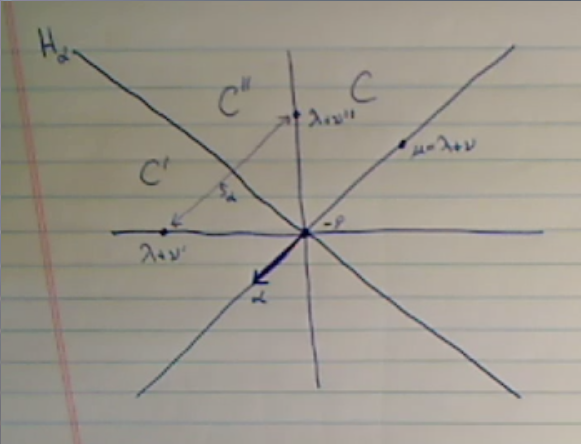 H_α
C''
C
λ+ν''
μ=λ+ν
C'
s_α
-ρ
λ+ν'
α